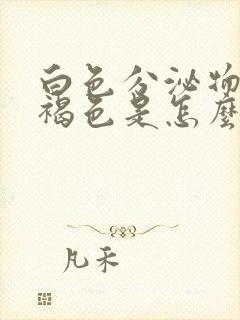 白色分泌物
褐色是怎麼
凡禾